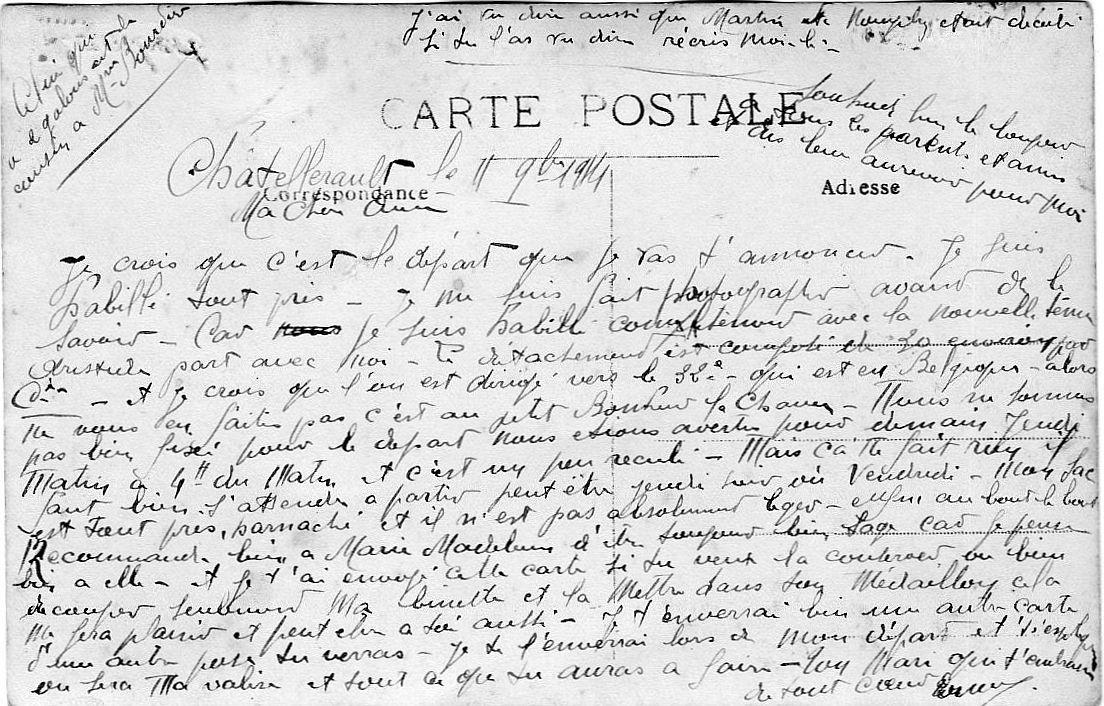 J'ai vu dire aussi que Martin de était décédé
si tu l'as vu dire récris moi-le -
Celui qui
a 2 galons est le
cousin a Mme Bourdin
CARTE POSTALE
Souhaite bien le bonjour
a tous les parents et amis
et dis leur aurevoir pour moi
Châtellerault le 11 9bre 1914
Correspondance
Adresse
Ma Chère
Je crois que c'est le départ que je vas t'annoncer. Je suis
habillé tout près - Je me suis fait photographier avant de le
savoir - Car nous je suis habillé complètement avec la nouvelle tenue
Aristide part avec moi - Le détachement est composé de 20 par
Cie - et je crois que l'on est dirigé vers le 32e - qui est en Belgique - alors
ne vous en faites pas c'est au petit Bonheur la Chance - Nous ne sommes
pas bien fixé pour le départ nous étions avertis pour demain Jeudi
Matin à 4h du Matin et c'est un peu reculé - Mais ça ne fait rien il
faut bien s'attendre a partir peut être jeudi soir ou Vendredi - Mon Sac
est tout près, et il n'est pas absolument léger - enfin au bout le bout
Recommande bien a Marie Madeleine d'être toujours bien sage car je pense
bien a elle - et je t'ai envoyé cette carte si tu veux la conserver ou bien
découper seulement Ma binette et la Mettre dans son Médaillon cela
me fera plaisir et peut être a toi aussi - Je t'enverrai bien une autre carte
d'une autre pose tu verras - Je te l'enverrai lors de mon départ et t'expliquer
ou sera Ma valise et tout ce que tu auras a faire - Ton Mari qui t'embrasse
de tout cœur